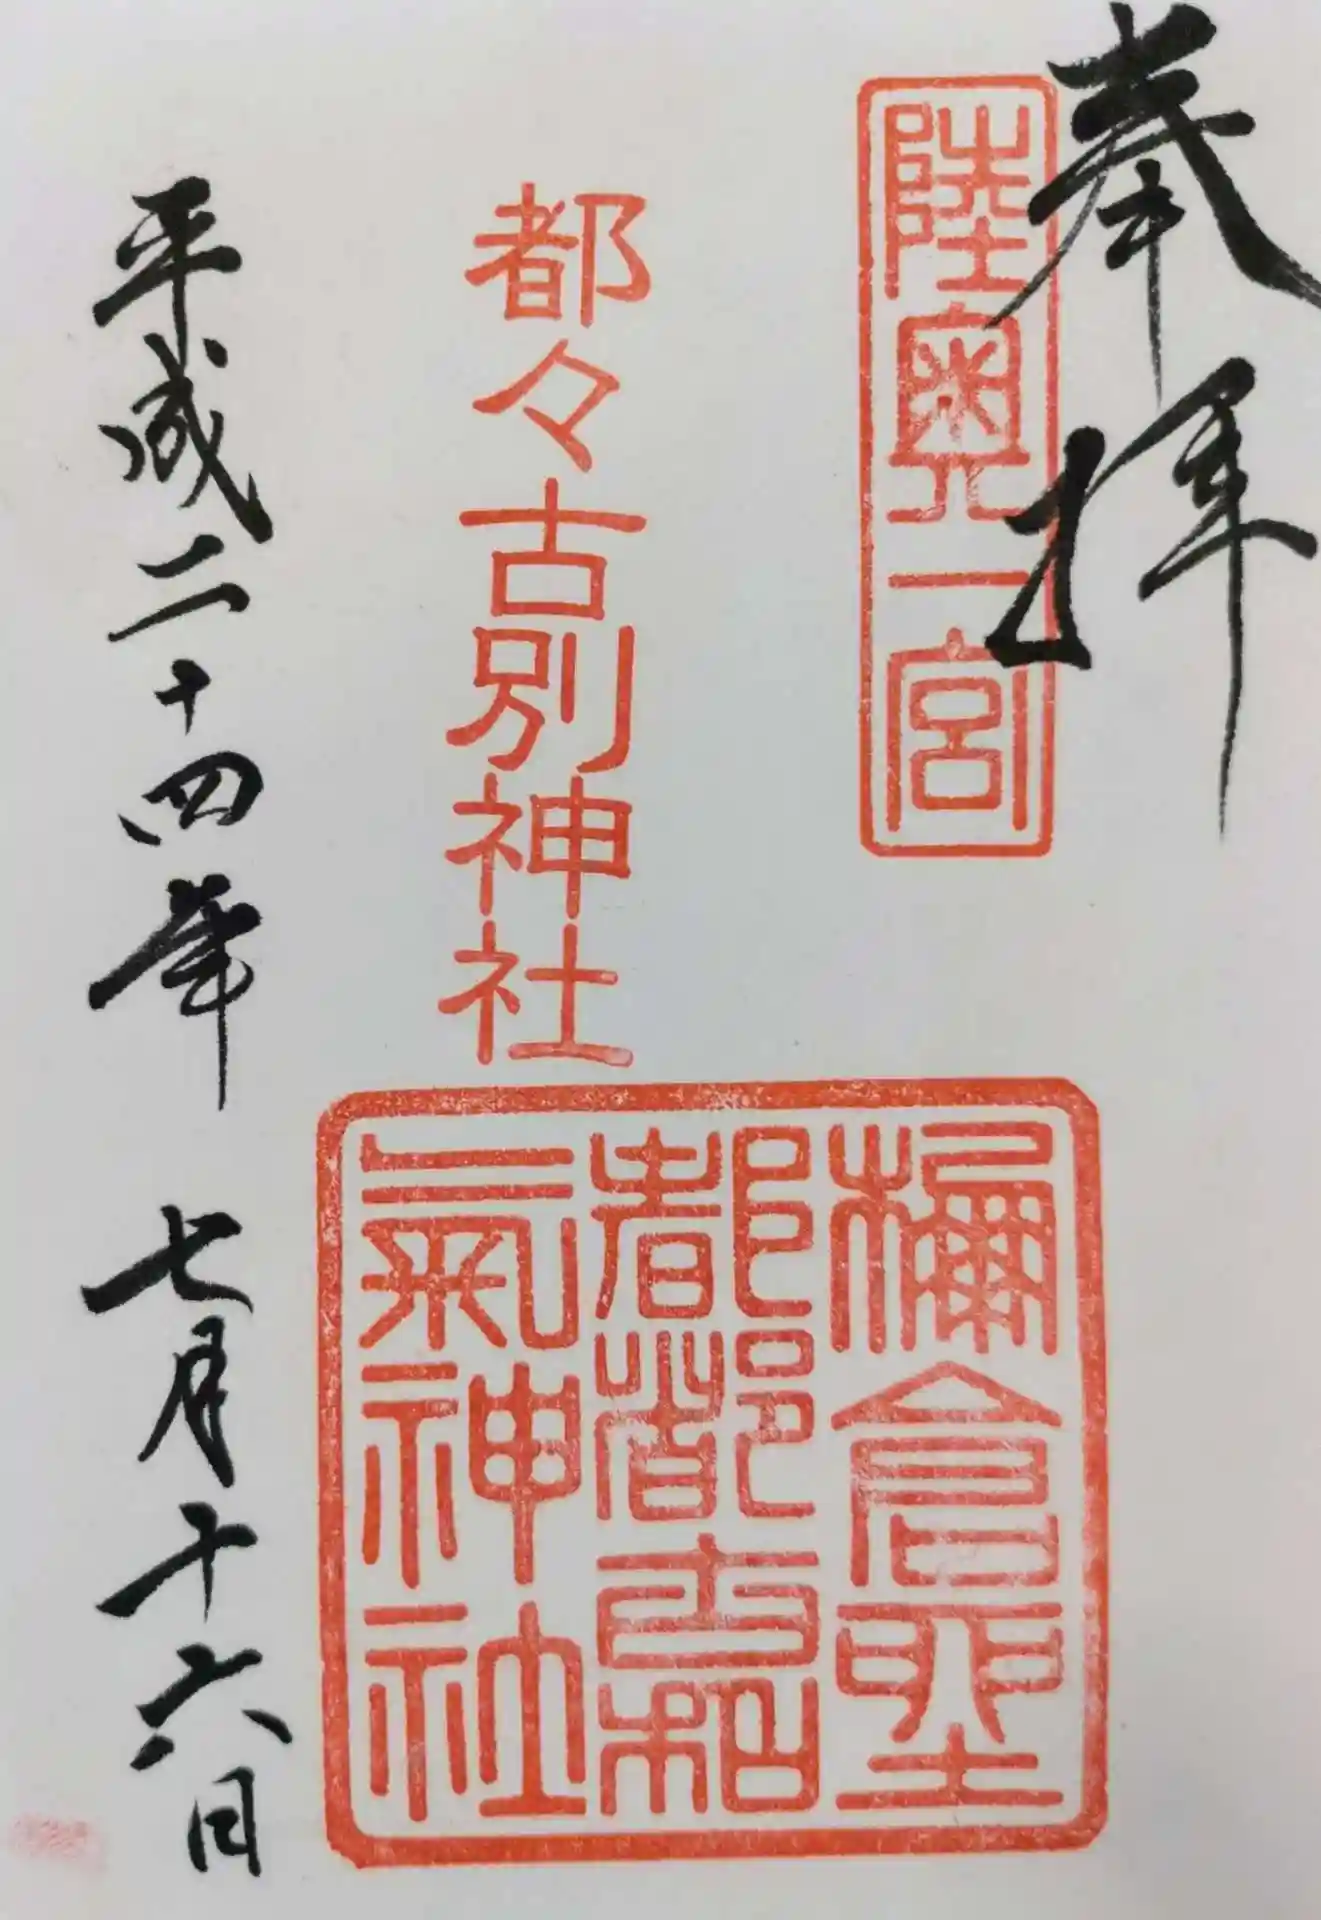 奉拝
陸奥一宮
都々古別神社
都都古和
氣神社
平成二十四年 七月十六日